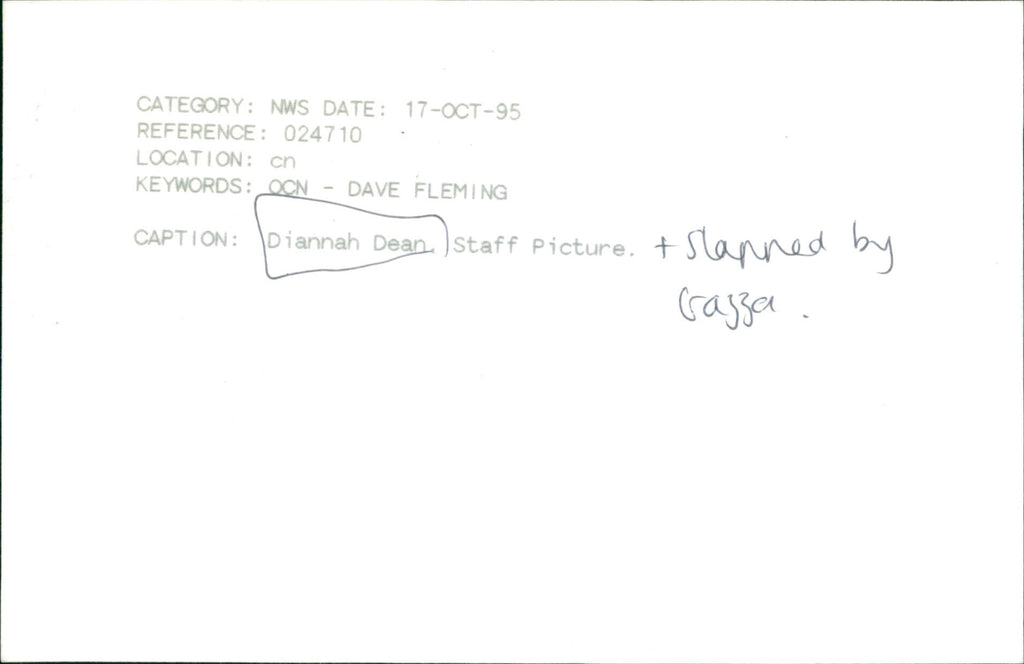 CATEGORY: NWS DATE: 17-OCT-95
REFERENCE: 024710
LOCATION: cn
KEYWORDS: OCN - DAVE FLEMING
CAPTION: Diannah Dean. Staff Picture. + slapped by
Gazza.